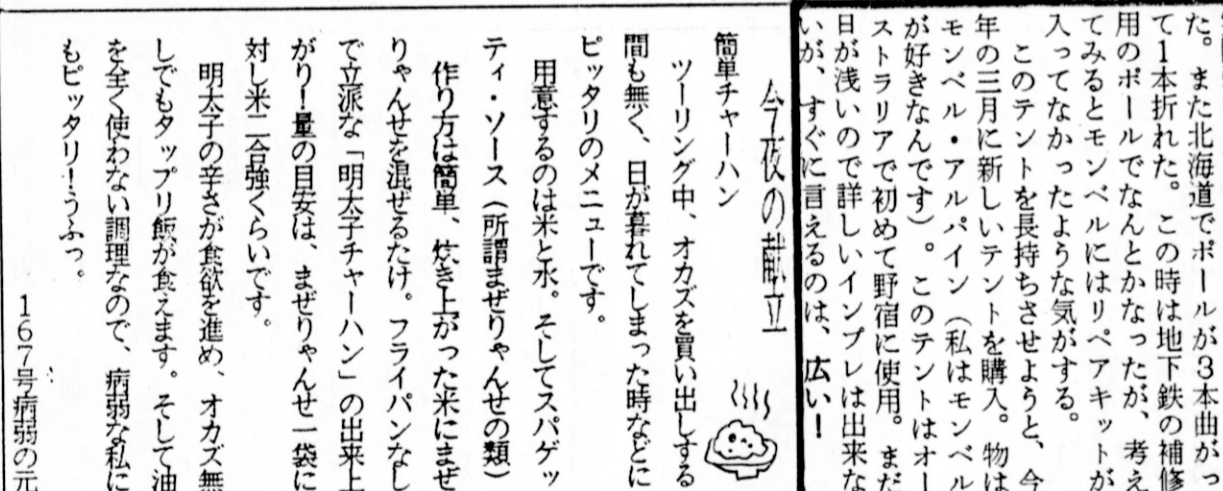 た。また北海道でポールが3本曲がっ
て1本折れた。この時は地下鉄の補修
用のポールでなんとかなったが、考え
てみるとモンベルにはリペアキットが
入ってなかったような気がする。
このテントを長持ちさせようと、今
年の三月に新しいテントを購入。物は
モンベル・アルパイン（私はモンベル
が好きなんです）。このテントはオー
ストラリアで初めて野宿に使用。まだ
日が浅いので詳しいインプレは出来な
いが、すぐに言えるのは、広い！
今夜の献立
簡単チャーハン
ツーリング中、オカズを買い出しする
間も無く、日が暮れてしまった時などに
ピッタリのメニューです。
用意するのは米と水。そしてスパゲッ
ティ・ソース（所謂まぜりゃんせの類）
作り方は簡単、炊き上がった米にまぜ
りゃんせを混ぜるたけ。フライパンなし
で立派な「明太子チャーハン」の出来上
がり！量の目安は、まぜりゃんせ一袋に
対し米二合強くらいです。
明太子の辛さが食欲を進め、オカズ無
しでもタップリ飯が食えます。そして油
を全く使わない調理なので、病弱な私に
もピッタリ！うふっ。
167号病弱の元